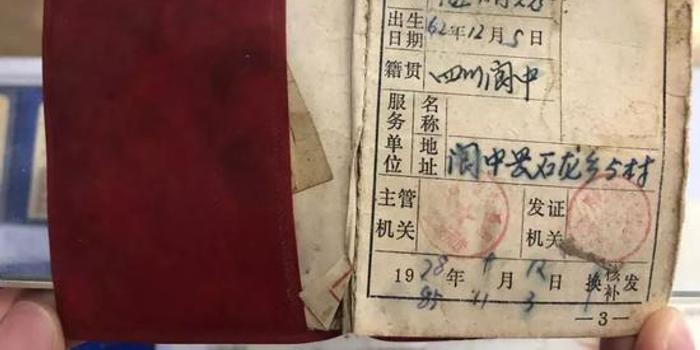 出生日期 62年12月5日
籍贯 四川阆中
服务单位 名称
地址 阆中县石龙乡5村
主管机关 发证机关
1978年 月12日 换核补发
85 11 3
—3—